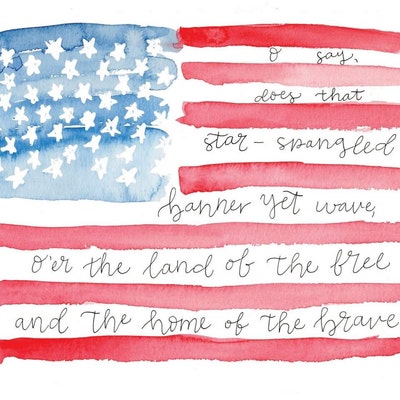 o say,
does that
star-spangled
banner yet wave,
o'er the land of the free
and the home of the brave